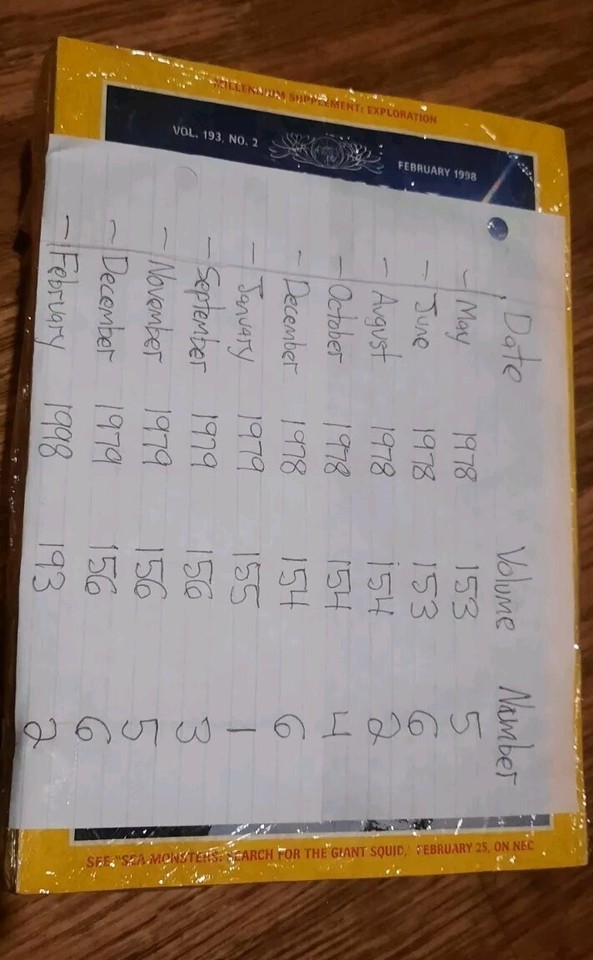 MILLENNIUM SUPPLEMENT: EXPLORATION
VOL. 193, NO. 2
FEBRUARY 1998
Date Volume Number
- May 1978 153 5
- June 1978 153 6
- August 1978 154 2
- October 1978 154 4
- December 1978 154 6
- January 1979 155 1
- September 1979 156 3
- November 1979 156 5
- December 1979 156 6
- February 1998 193 2
SEE "SEA MONSTERS: SEARCH FOR THE GIANT SQUID," FEBRUARY 25, ON NBC